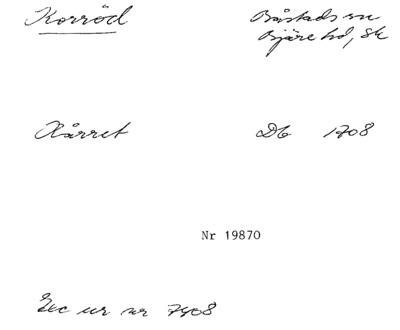 Korröd
Båstads sn
Bjäre hd, Sk
Kärret Db 1708
Nr 19870
Exc ur nr 7408